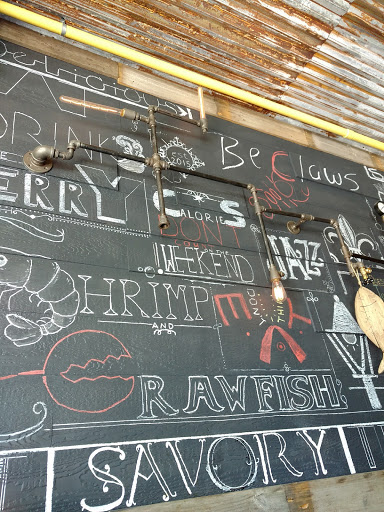 Delicious
DRINK
2015
Be Claws
ERRY
CALORIES
DON'T
WEEKEND
JAZZ
SHRIMP
AND
EAT
CRAWFISH
SAVORY